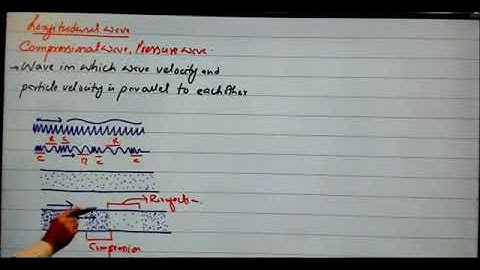 Longitudinal wave
Compressional wave, Pressure wave.
→ Wave in which wave velocity and
particle velocity is parallel to each other
R C R
C R C C
Compression